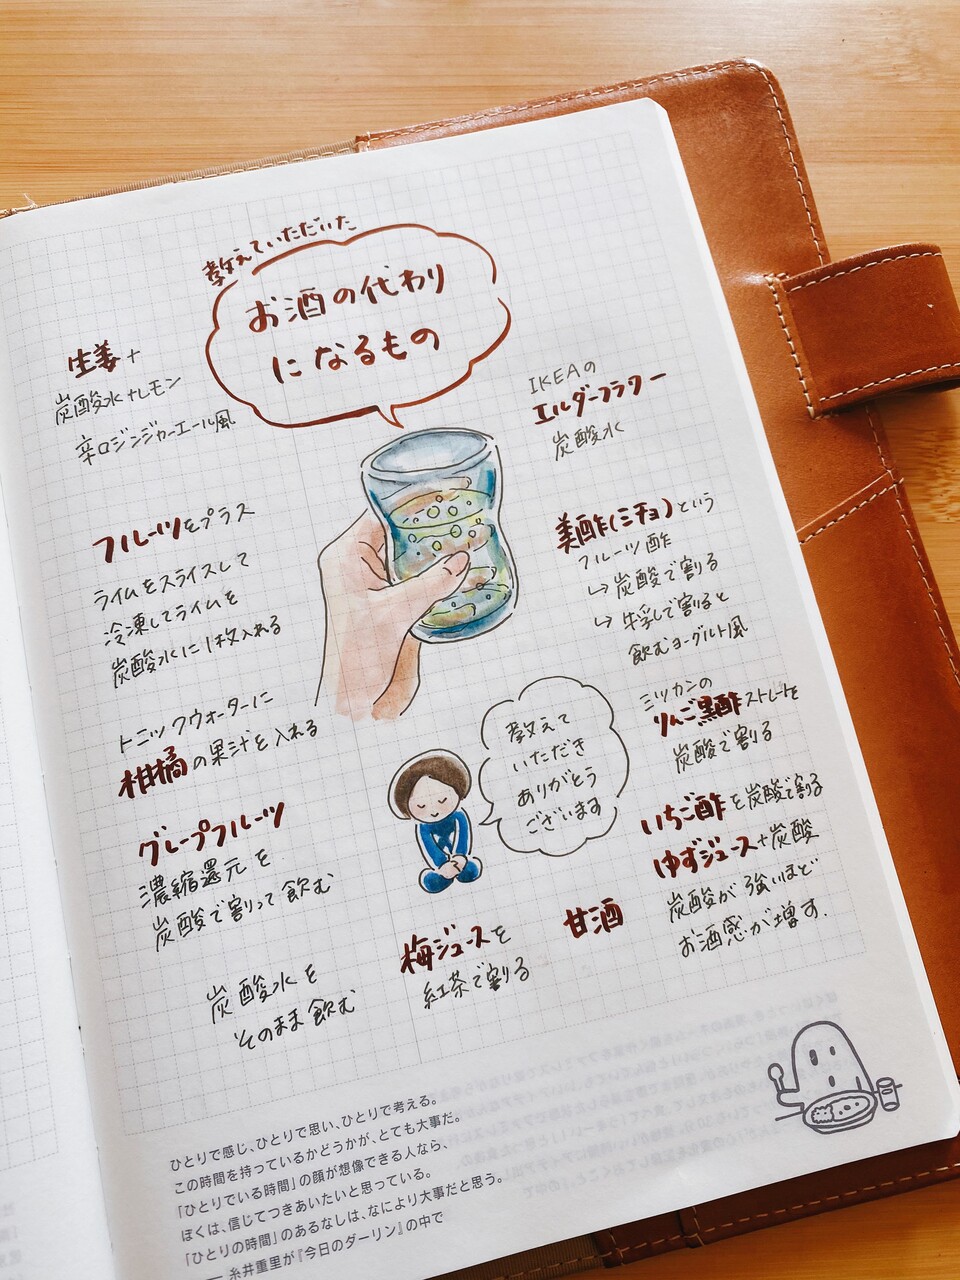 教えていただいた
お酒の代わり
になるもの
生姜+
炭酸水+レモン
辛口ジンジャーエール風
フルーツをプラス
ライムをスライスして
冷凍してライムを
炭酸水に1枚入れる
トニックウォーターに
柑橘の果汁を入れる
グレープフルーツ
濃縮還元を
炭酸で割って飲む
炭酸水を
そのまま飲む
IKEAの
エルダーフラワー
炭酸水
美酢(ミチョ)という
フルーツ酢
↳炭酸で割る
↳牛乳で割ると
飲むヨーグルト風
ミツカンの
りんご黒酢ストレートを
炭酸で割る
いちご酢を炭酸で割る
ゆずジュース+炭酸
炭酸が強いほど
お酒感が増す.
教えて
いただき
ありがとう
ございます
梅ジュースを
紅茶で割る
甘酒
ひとりで感じ、ひとりで思い、ひとりで考える。
この時間を持っているかどうかが、とても大事だ。
「ひとりでいる時間」の顔が想像できる人なら、
ぼくは、信じてつきあいたいと思っている。
「ひとりの時間」のあるなしは、なにより大事だと思う。
── 糸井重里が『今日のダーリン』の中で